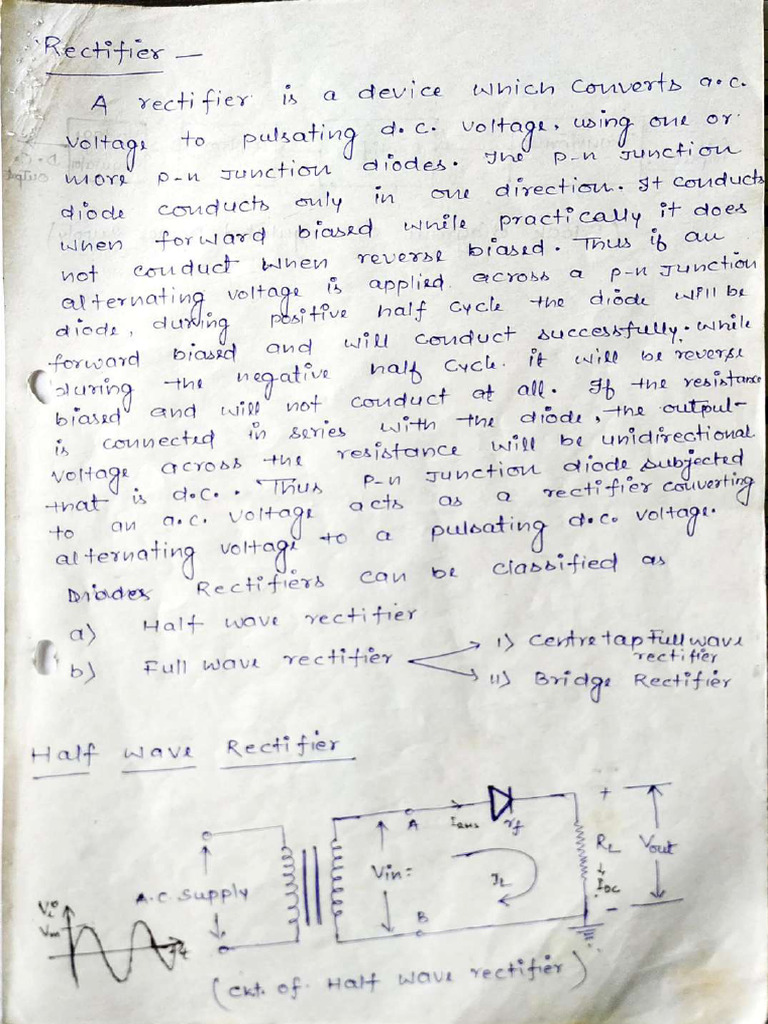 Rectifier —
A rectifier is a device which converts a.c.
voltage to pulsating d.c. voltage, using one or
more p-n junction diodes. The p-n junction
diode conducts only in one direction. It conducts
when forward biased while practically it does
not conduct when reverse biased. Thus if an
alternating voltage is applied across a p-n junction
diode, during positive half cycle the diode will be
forward biased and will conduct successfully. While
during the negative half cycle it will be reverse
biased and will not conduct at all. If the resistance
is connected in series with the diode, the output
voltage across the resistance will be unidirectional
that is d.c.. Thus p-n junction diode subjected
to an a.c. voltage acts as a rectifier converting
alternating voltage to a pulsating d.c. voltage.
Diodes Rectifiers can be classified as
a) Half wave rectifier
b) Full wave rectifier
i) Centre tap Full wave
rectifier
ii) Bridge Rectifier
Half wave Rectifier
A.C. Supply
Vin=
A
B
rf
IL
+
RL
IDC
-
Vout
Vi
Vm
(ckt. of Half wave rectifier)